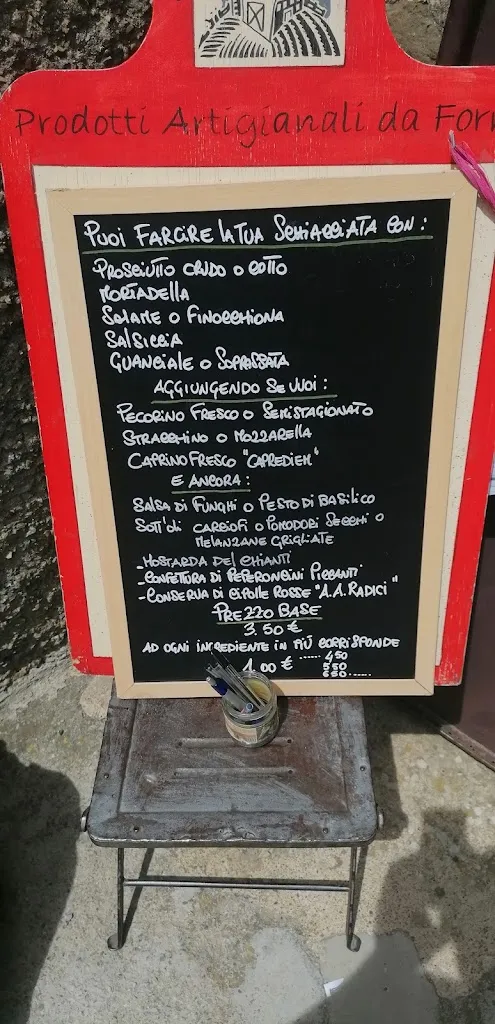 Prodotti Artigianali da
PUOI FARCIRE LA TUA SCHIACCIATA CON:
PROSCIUTTO CRUDO O COTTO
MORTADELLA
SALAME O FINOCCHIONA
SALSICCIA
GUANCIALE O SOPRASSATA
AGGIUNGENDO SE VUOI:
PECORINO FRESCO O SEMISTAGIONATO
STRACCHINO O MOZZARELLA
CAPRINO FRESCO "CAPREDIEM"
E ANCORA:
SALSA DI FUNGHI O PESTO DI BASILICO
SOTT'OLI CARCIOFI O POMODORI SECCHI O
MELANZANE GRIGLIATE
-MOSTARDA DEL CHIANTI
-CONFETTURA DI PEPERONCINI PICCANTI
-CONSERVA DI CIPOLLE ROSSE "A.A. RADICI"
PREZZO BASE
3.50 €
AD OGNI INGREDIENTE IN PIÙ CORRISPONDE
1.00 € ...... 4.50
5.50
6.50 ......